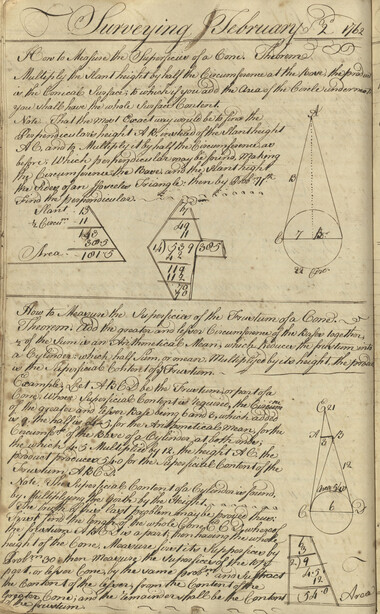 Surveying February 2 1762
How to Measure the Superficies of a Cone. Theorem
Multiply the Slant height by half the Circumference at the Base, the product
is the Conical Surface; to which if you add the Area of the Circle underneath
you shall have the whole Surface Content.
Note. That the most Exact way would be to find the
Perpendicular height AB, instead of the Slant height
AC, and Multiply it by half the Circumference, as
before; Which perpendicular may be found, Making
the Circumference the Base, and the Slant height
the Sides of an Isosceles Triangle; then by Prob
find the Perpendicular.
Slant 13
½ Circum 11
143
38.5
Area 181.5
7
7
49
11
14) 539 (38.5
42
119
112
70
70
A
13
C 7 B
22 Circ
How to Measure the Superficies of the Frustum of a Cone.
Theorem. Add the greater and lesser Circumference of the Bases together,
½ of the Sum is an Arithmetical Mean, which reduces the frustum into
a Cylinder; which half Sum, or mean, Multiplied by its height, the product
is the Superficial Content of Frustum
Example, Let ABCD be the Frustum, or part of a
Cone, Whose Superficial Content is required, the Circum
of the greater and lesser Base being 6 and 3, which added
is 9, the half is 4.5 for the Arithmetical mean, for the
Circumf of the Base of a Cylinder, at both ends;
the which 4.5 Multiplied by 12, the height AC, the
product produces 54.0 for the Superficial Content of the
Frustum ABCD.
Note. The Superficial Content of a Cylinder is found,
by Multiplying the Girth by the Height.
The truth of the last problem may be proved thus.
First find the length of the whole Cone, ECD, whereof
the frustum ABCD is a part, then having the whole
height of the Cone, Measure first its Superficies by
Prob 30 then Measure the Superficies of the top
part or lesser Cone, by the same, and Subtract
the Content of the lesser, from the Content of the
Greater Cone; and the remainder shall be the Content
of the frustum
E 21
A 3 B
12
Area 54.0
C 6 D
6
3
2) 9
4.5
12
54.0 Area